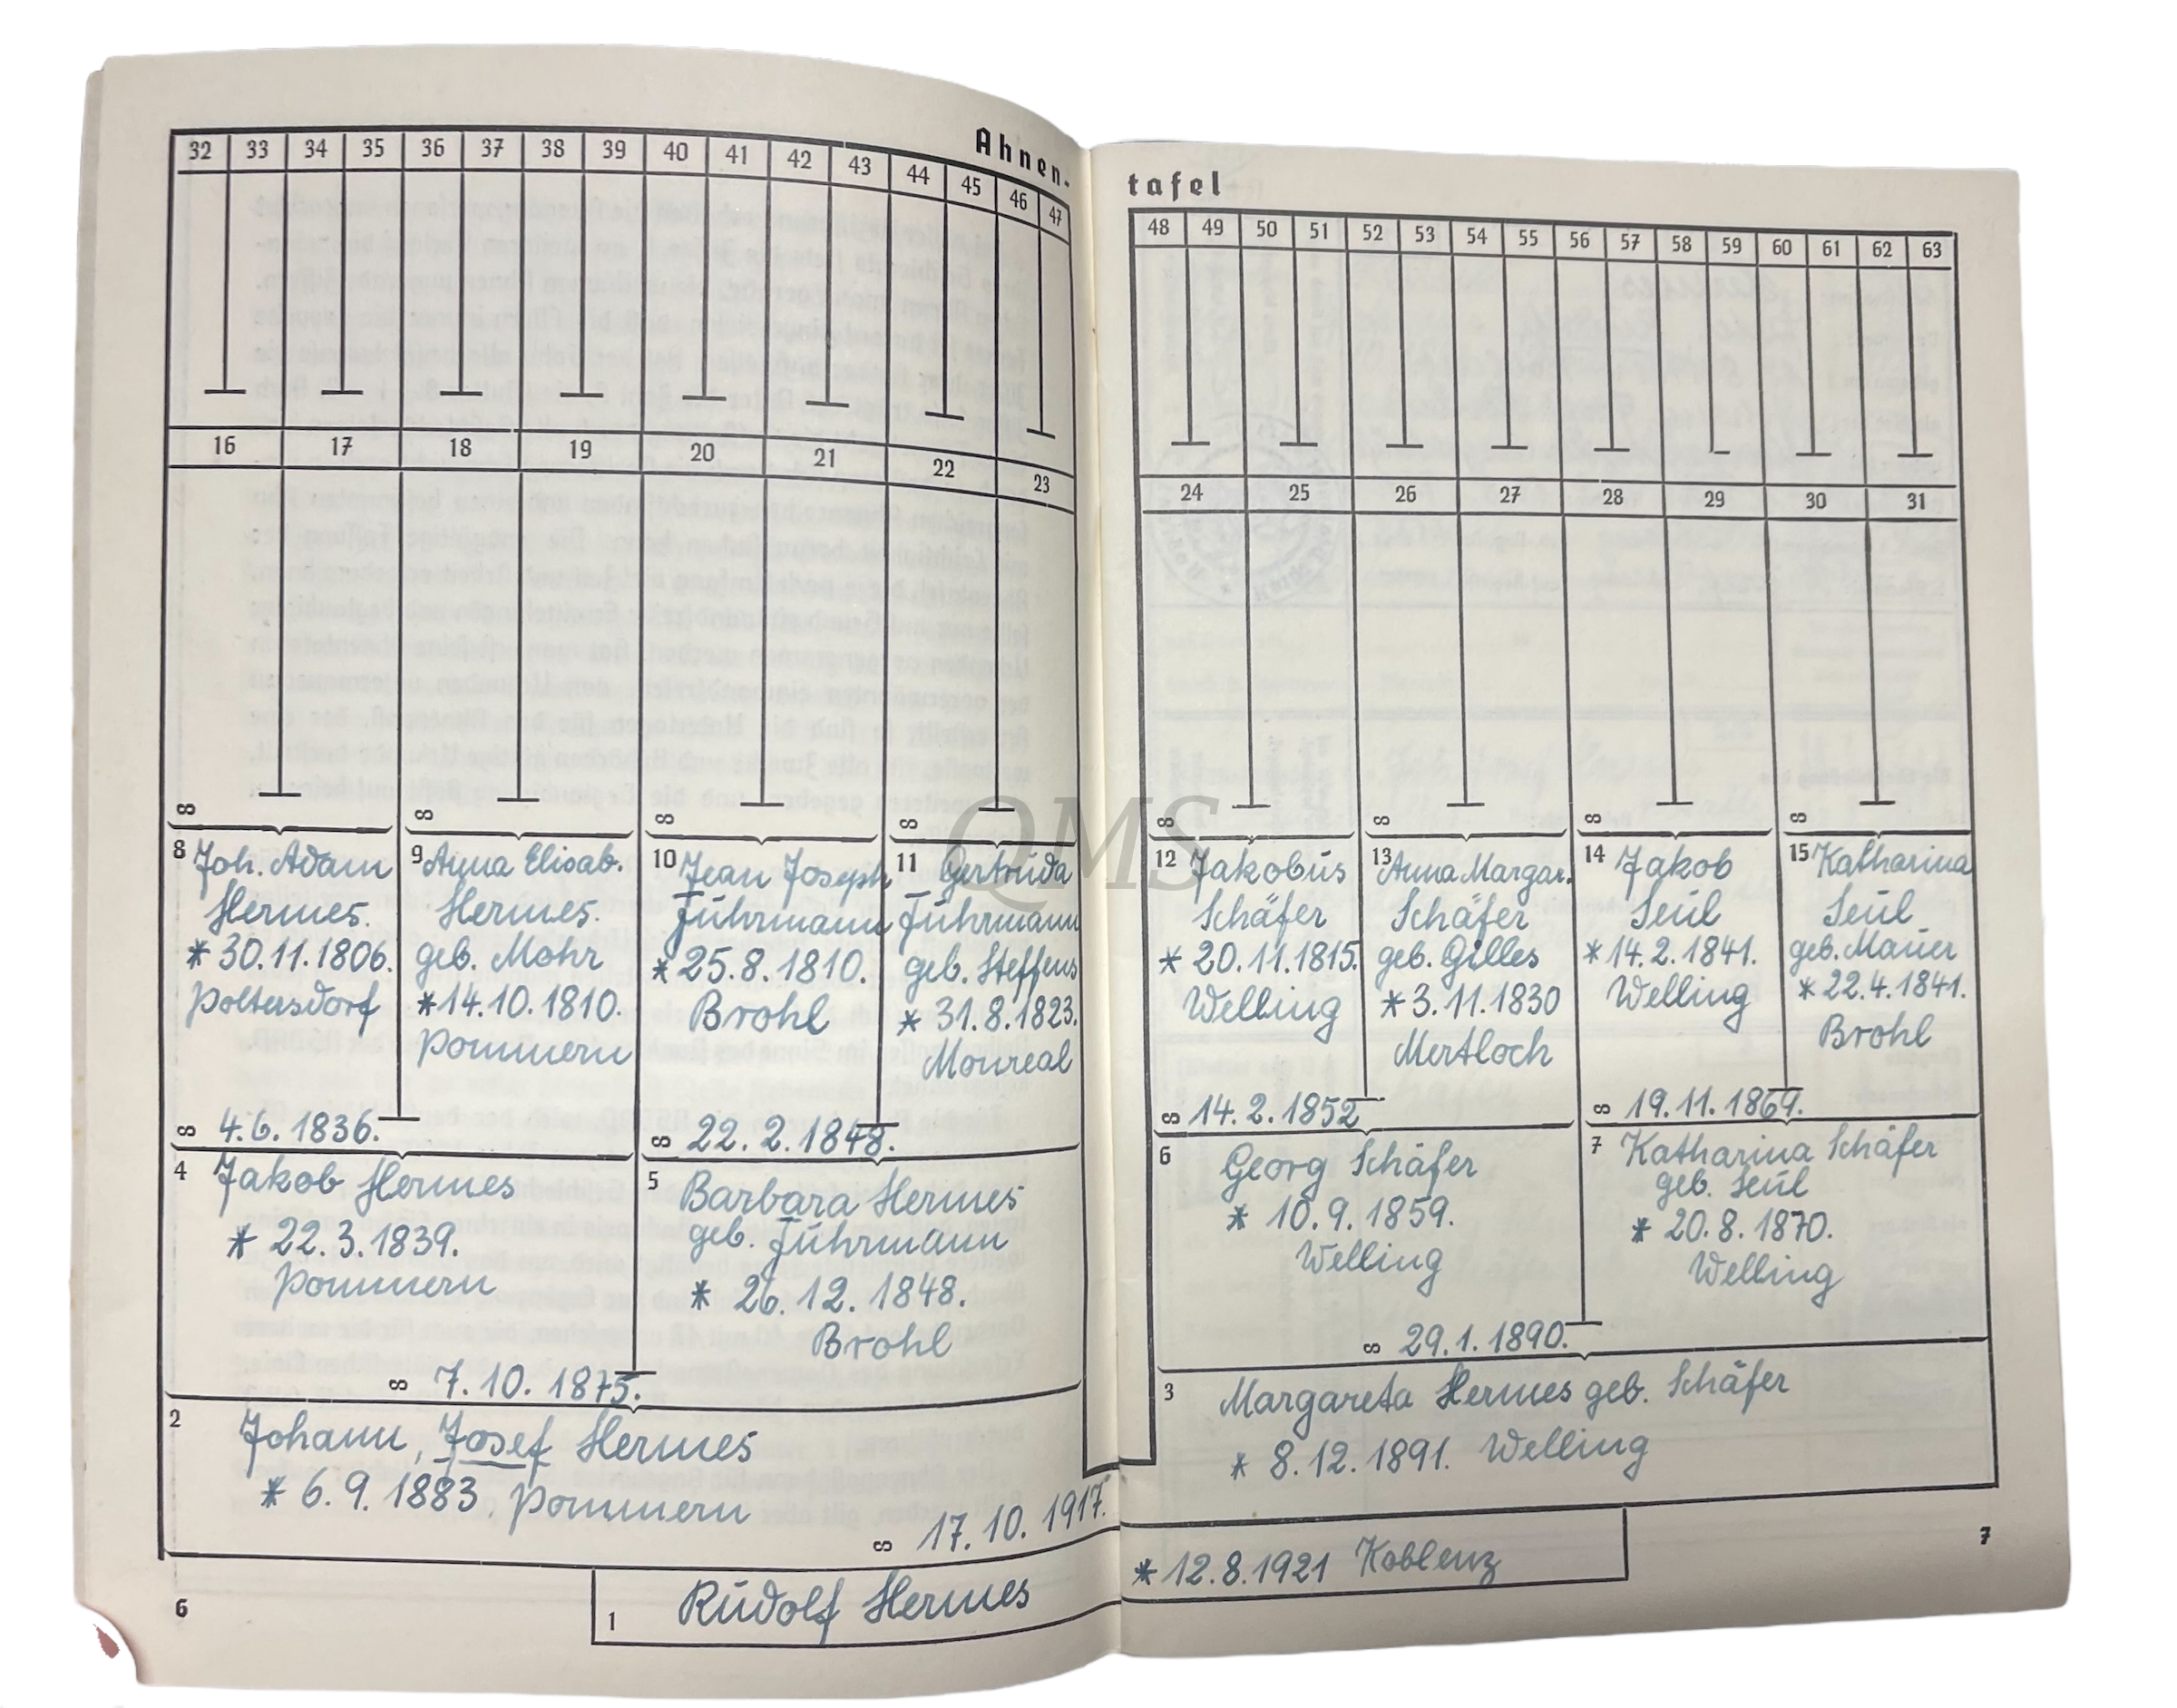 Ahnen-
32 33 34 35 36 37 38 39 40 41 42 43 44 45 46 47
16 17 18 19 20 21 22 23
∞ ∞ ∞ ∞
8 Joh. Adam
Hermes.
* 30.11.1806.
Poltersdorf
∞ 4.6.1836.
9 Anna Elisab.
Hermes.
geb. Mohr
* 14.10.1810.
Pommern
10 Jean Joseph
Führmann
* 25.8.1810.
Brohl
∞ 22.2.1848.
11 Gertruda
Führmann
geb. Steffens
* 31.8.1823.
Monreal
4 Jakob Hermes
* 22.3.1839.
Pommern
∞ 7.10.1875.
5 Barbara Hermes
geb. Führmann
* 26.12.1848.
Brohl
2 Johann, Josef Hermes
* 6.9.1883. Pommern
∞ 17.10.1917.
1 Rudolf Hermes
6
tafel
48 49 50 51 52 53 54 55 56 57 58 59 60 61 62 63
24 25 26 27 28 29 30 31
∞ ∞ ∞ ∞
12 Jakobus
Schäfer
* 20.11.1815.
Welling
∞ 14.2.1852
13 Anna Margar.
Schäfer
geb. Gilles
* 3.11.1830
Mertloch
14 Jakob
Seul
* 14.2.1841.
Welling
∞ 19.11.1869.
15 Katharina
Seul
geb. Mauer
* 22.4.1841.
Brohl
6 Georg Schäfer
* 10.9.1859.
Welling
∞ 29.1.1890.
7 Katharina Schäfer
geb. Seul
* 20.8.1870.
Welling
3 Margareta Hermes geb. Schäfer
* 8.12.1891. Welling
* 12.8.1921 Koblenz
7
QMS